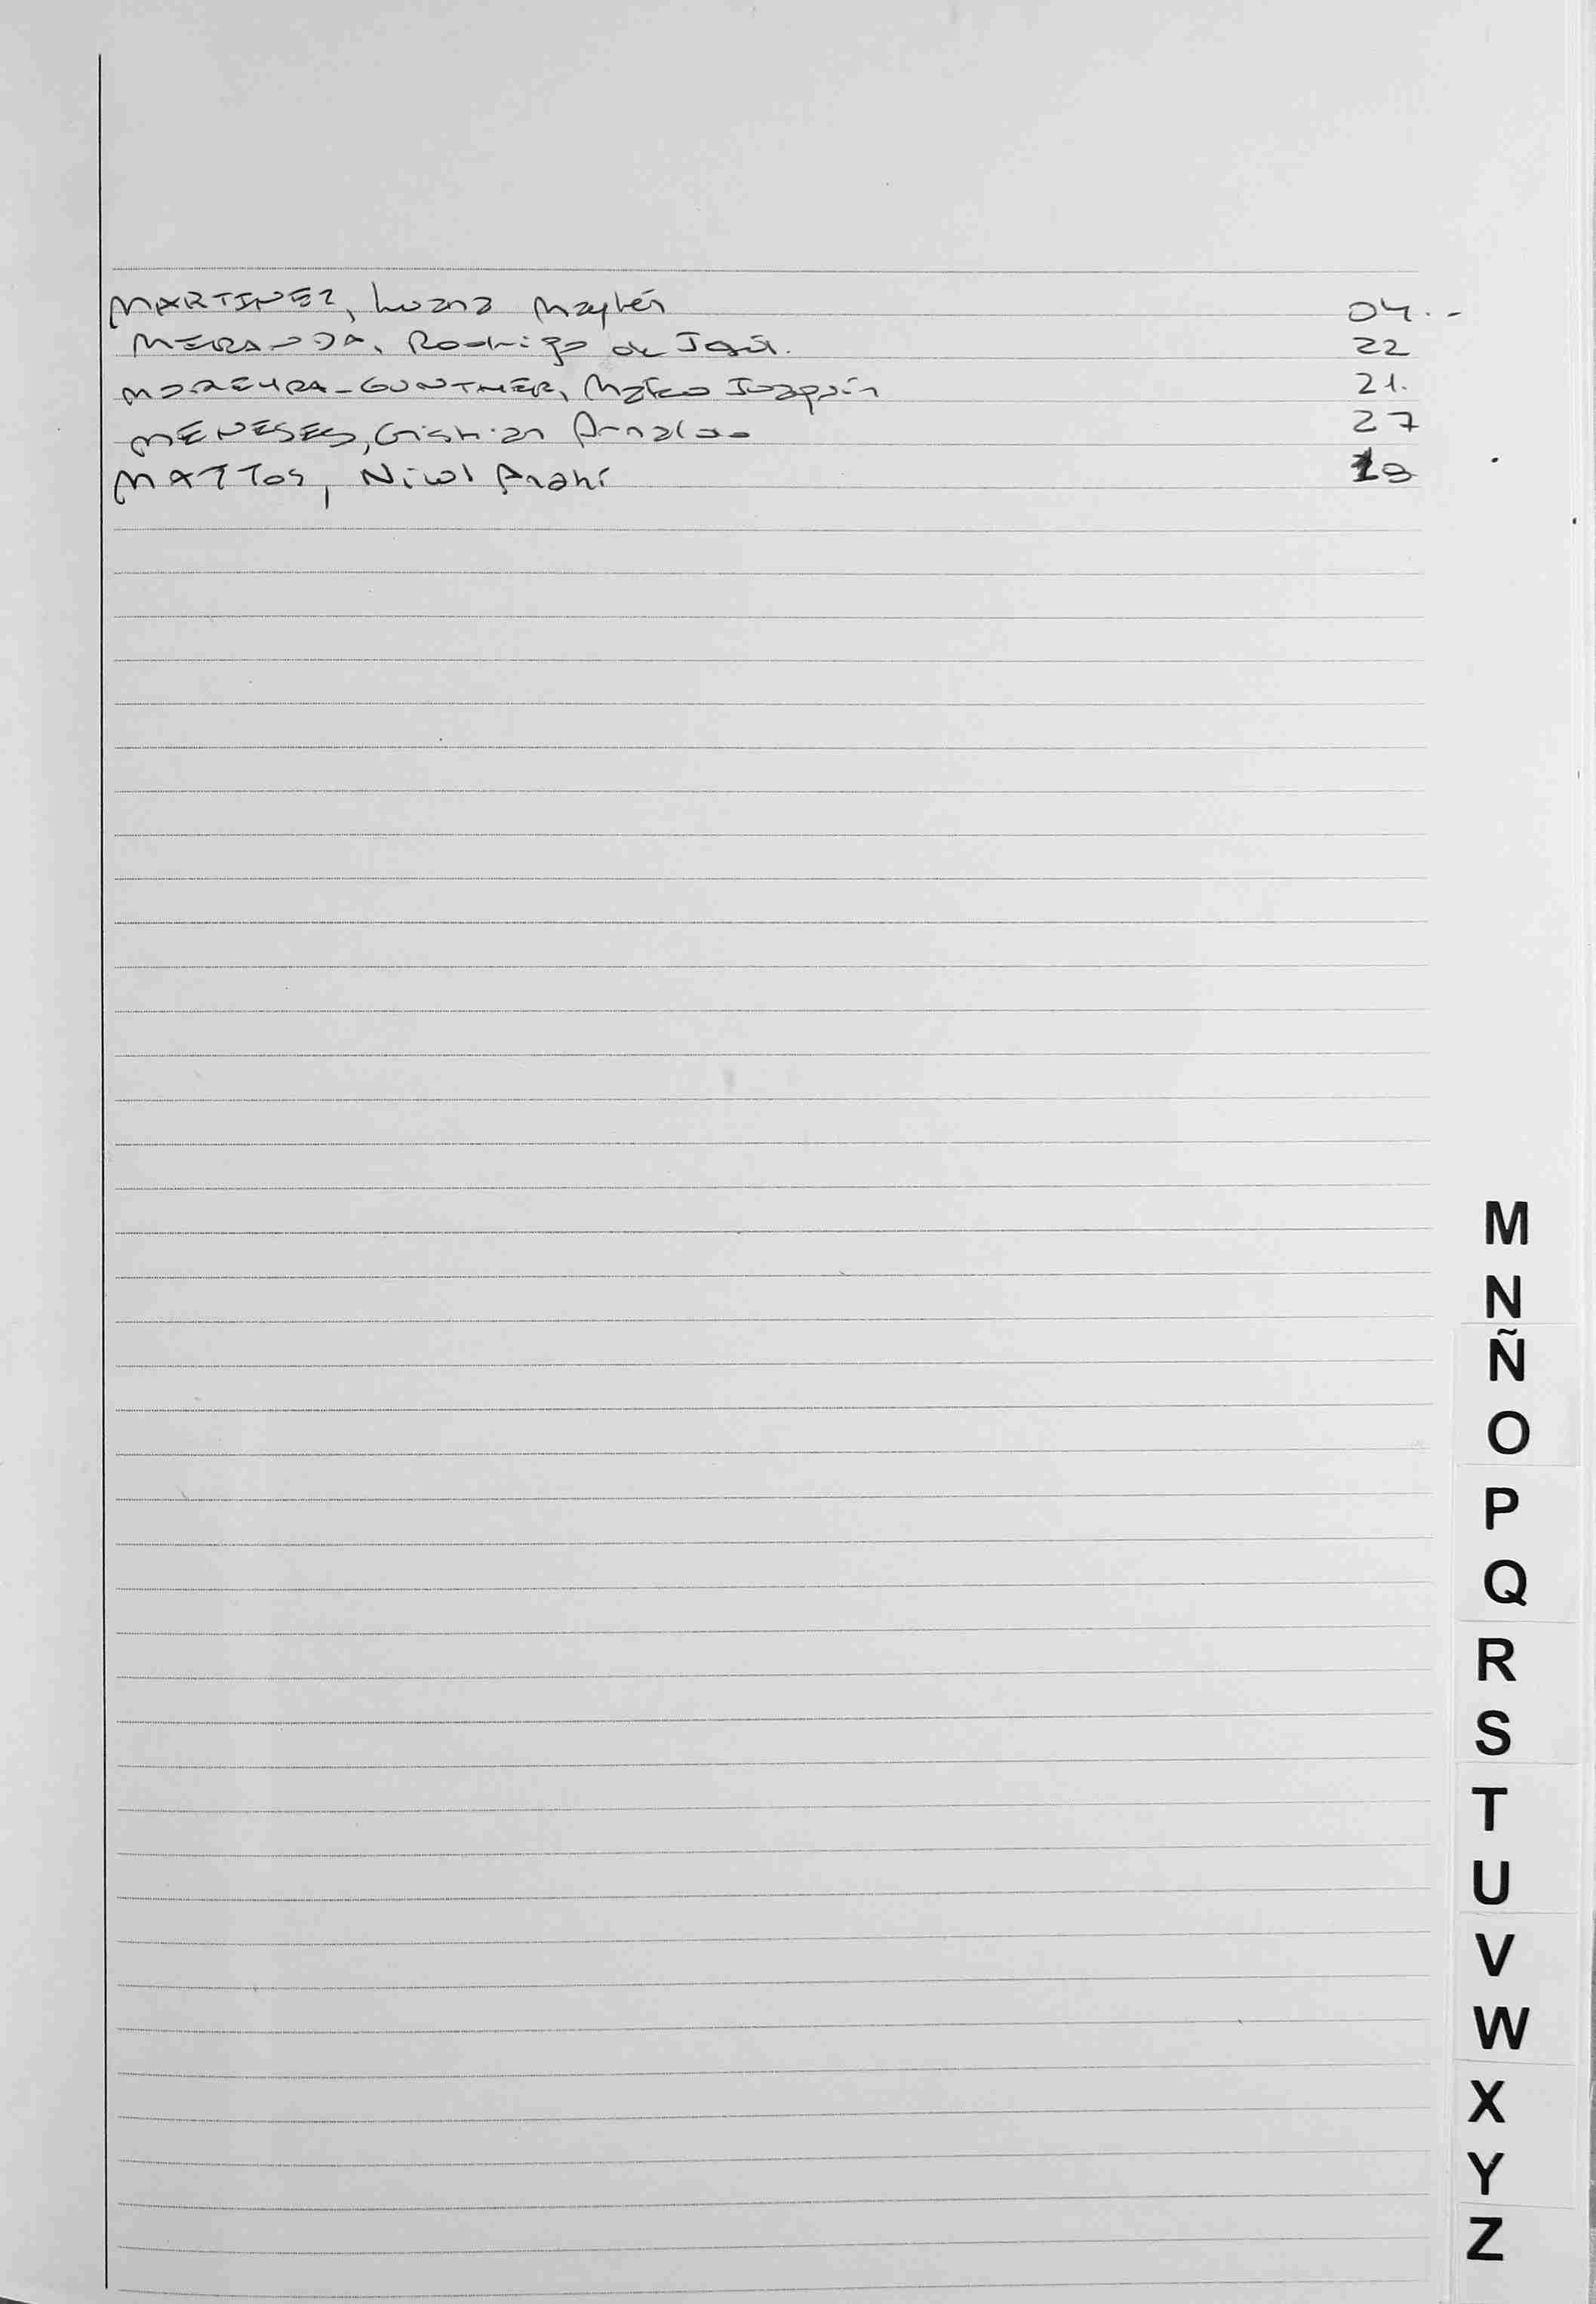 MARTINEZ, Luana Maylén 04.-
MERANDA, Rodrigo de Jesús. 22
MOREYRA-GUNTHER, Mateo Joaquín 21.
MENESES, Cristian Arnaldo 27
MATTOS, Nicol Anahí 19
M
N
Ñ
O
P
Q
R
S
T
U
V
W
X
Y
Z